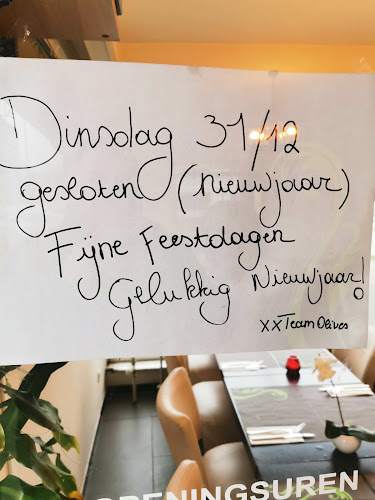 Dinsdag 31/12
gesloten (Nieuwjaar)
Fijne Feestdagen
Gelukkig Nieuwjaar!
xx Team Olives
OPENINGSUREN